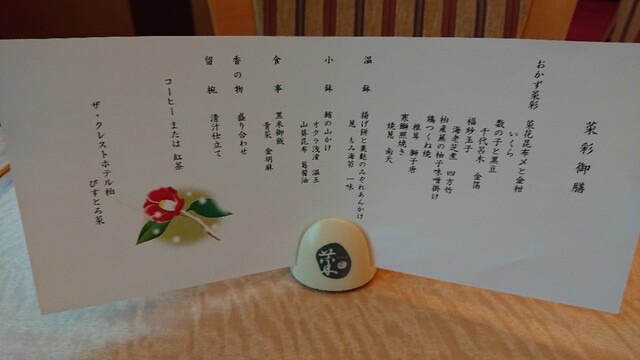 菜彩御膳
おかず菜彩 菜花昆布〆と金柑
いくら
数の子と黒豆
千代呂木 金箔
福紗玉子
海老芝煮 四方竹
柏産蕪の柚子味噌掛け
鶏つくね焼
椎茸 獅子唐
寒鰤照焼き
焼葱 南天
温鉢 揚げ餅と粟麩のみぞれあんかけ
葱 もみ海苔 一味
小鉢 鮪の山かけ
オクラ浅漬 温玉
山葵昆布 葛醤油
食事 黒米御飯
青菜 金胡麻
香の物 盛り合わせ
留椀 清汁仕立て
コーヒー または 紅茶
ザ・クレストホテル柏
びすとろ菜